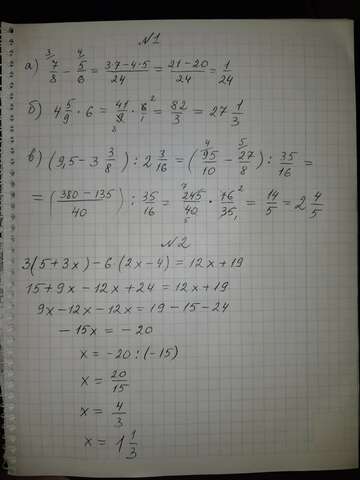 №1
а) 3 7/8 - 4 5/6 = 3·7-4·5/24 = 21-20/24 = 1/24
б) 4 5/9 · 6 = 41/9 3 · 6/1 2 = 82/3 = 27 1/3
в) (9,5 - 3 3/8) : 2 3/16 = (4 95/10 - 5 27/8) : 35/16 =
= (380-135/40) : 35/16 = 7 245/40 5 · 16/35 2 = 14/5 = 2 4/5
№2
3(5+3x) - 6·(2x-4) = 12x+19
15+9x-12x+24 = 12x+19
9x-12x-12x = 19-15-24
-15x = -20
x = -20:(-15)
x = 20/15
x = 4/3
x = 1 1/3